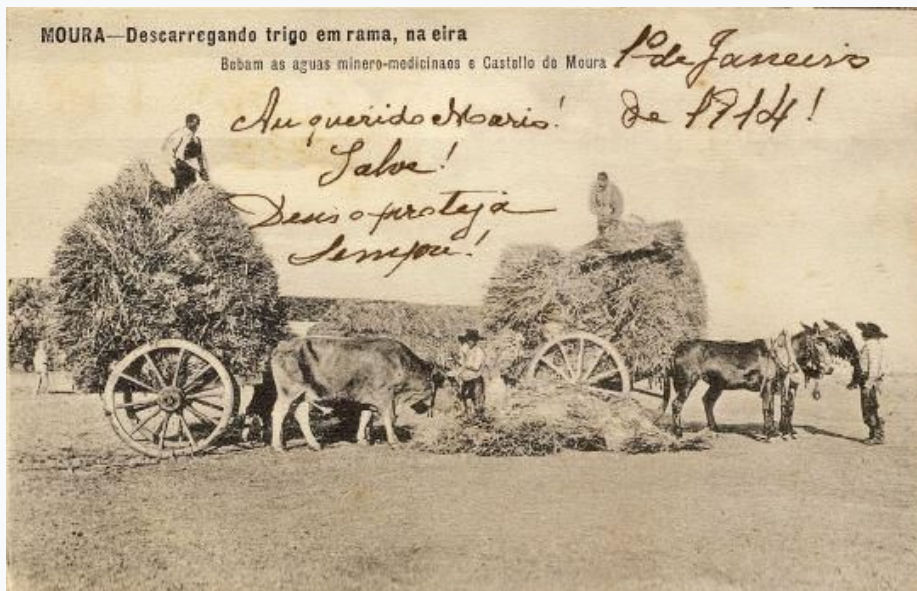 MOURA—Descarregando trigo em rama, na eira
Bebam as aguas minero-medicinaes e Castello de Moura
1º de Janeiro
de 1914!
Au querido Mario!
Salve!
Deus o proteja
Sempre!